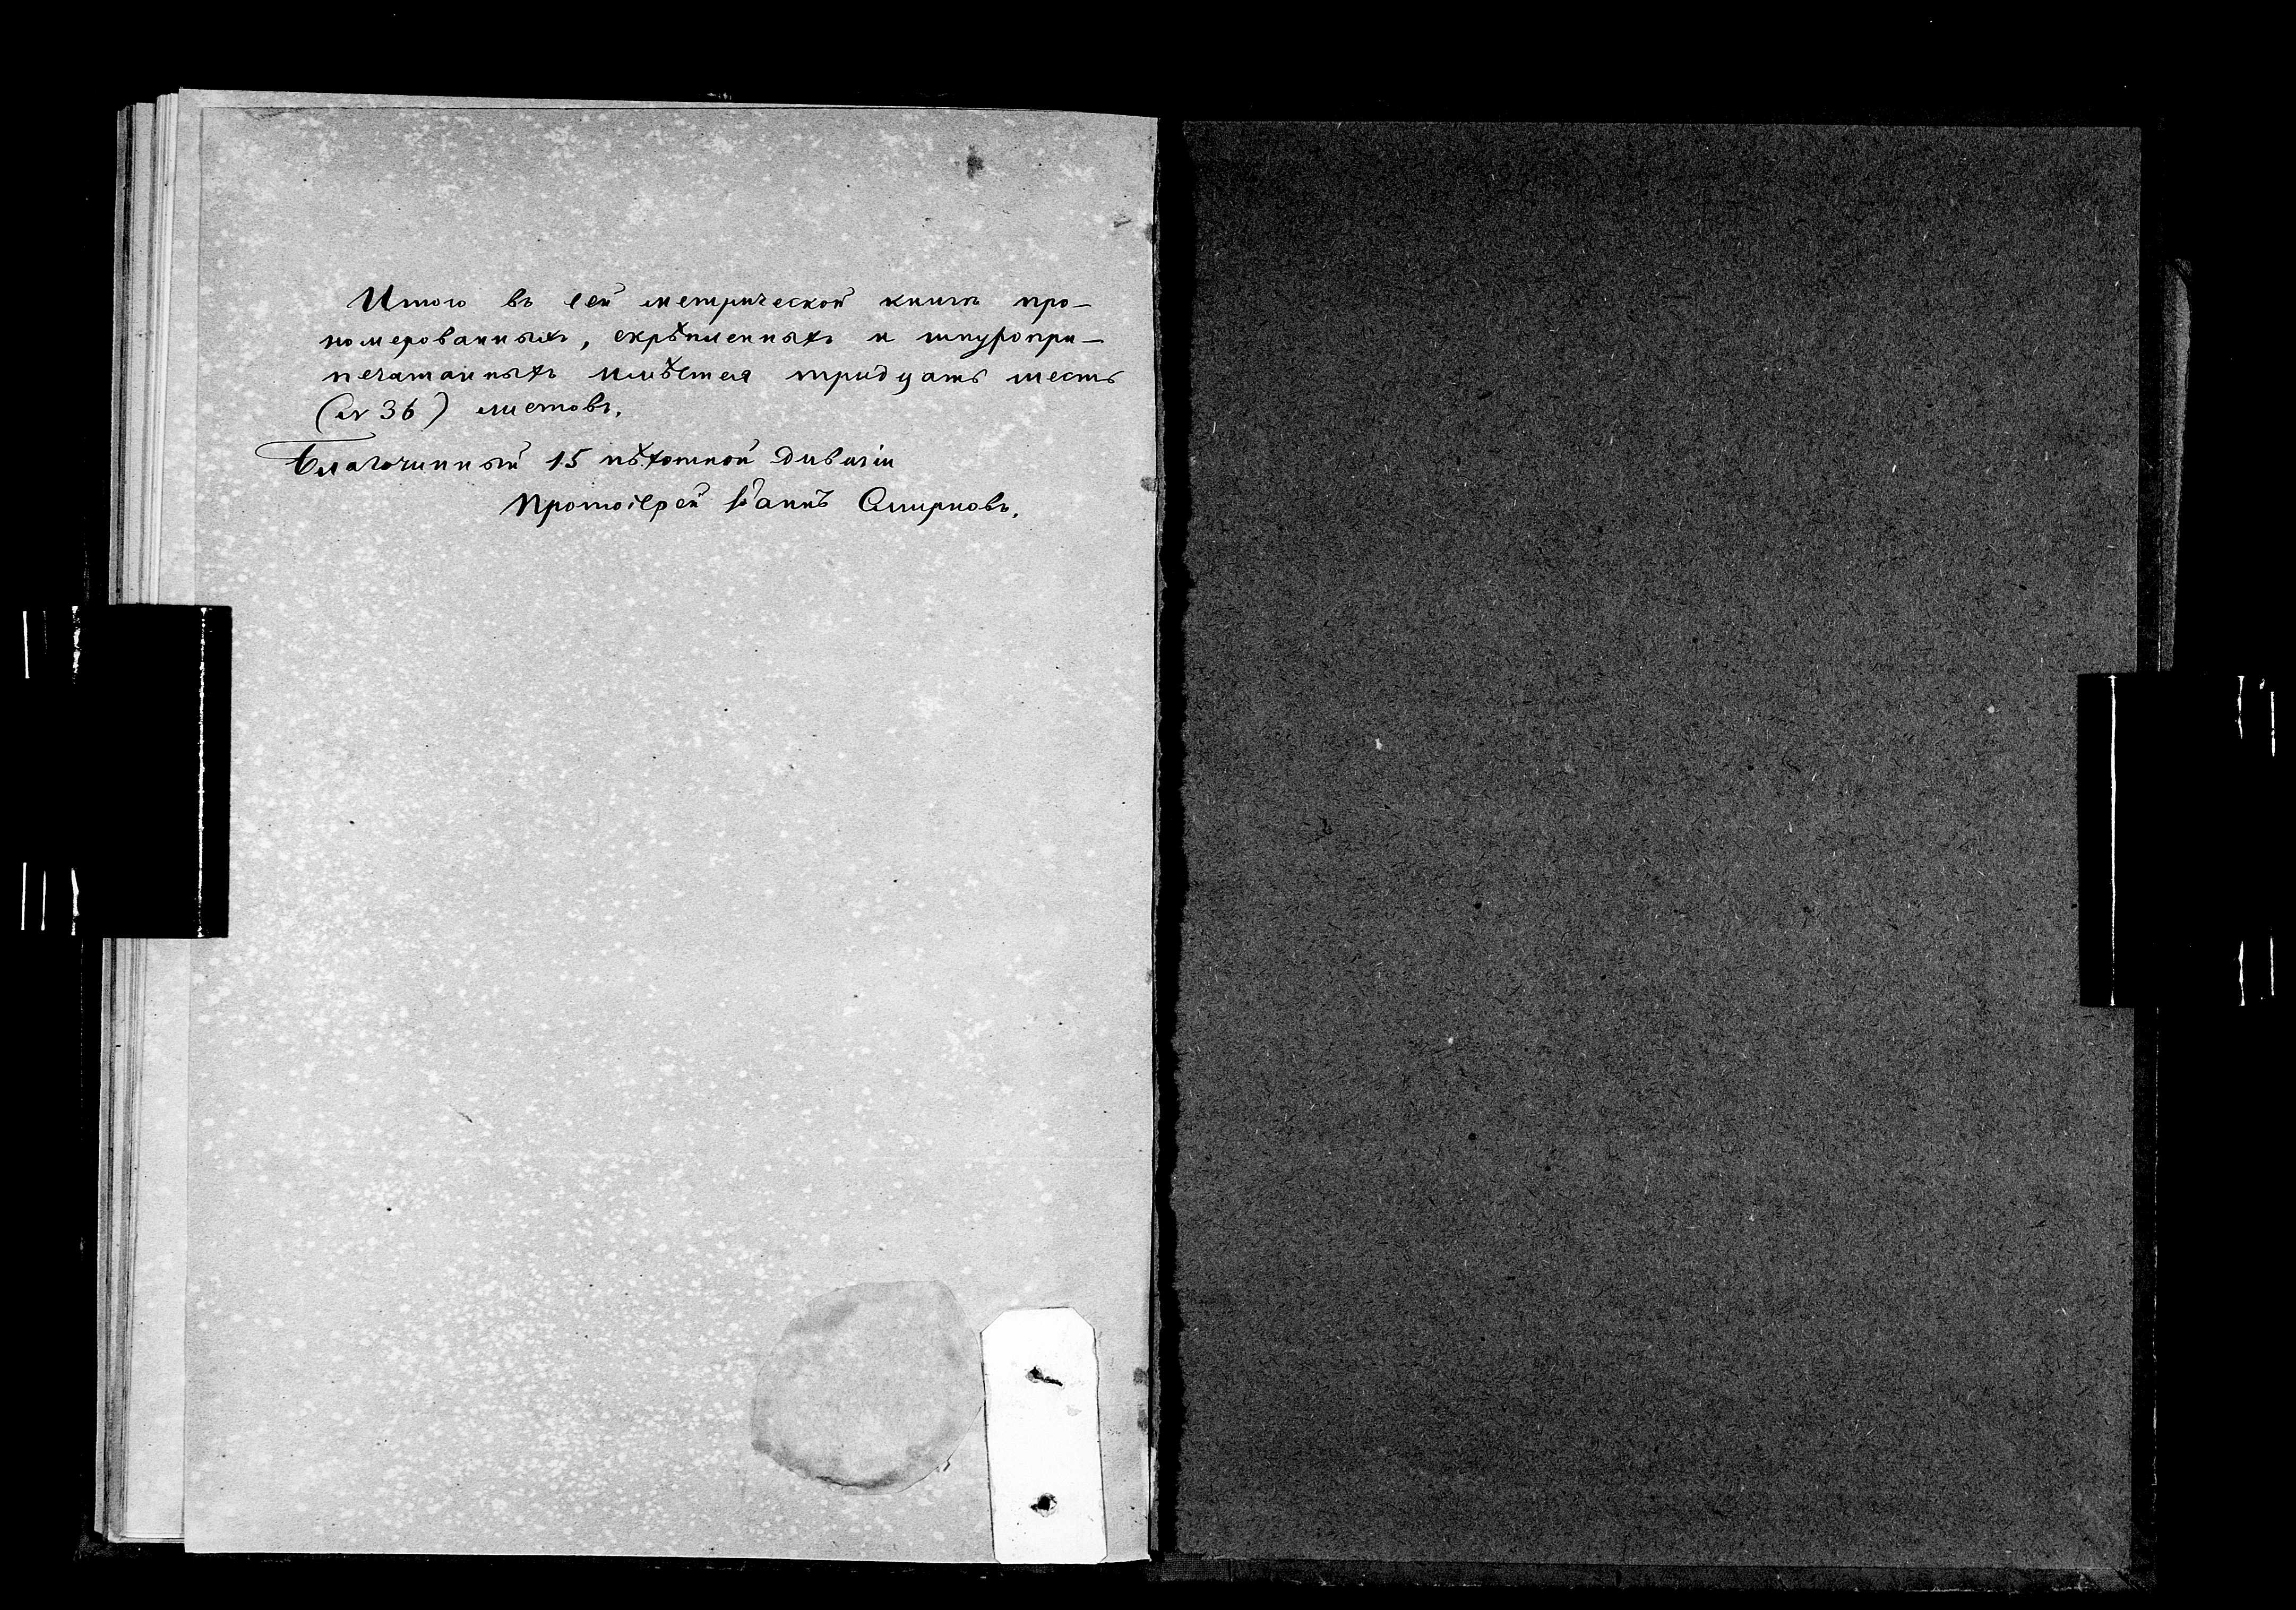 Итого въ сей метрической книгѣ про-
номерованныхъ, скрѣпленныхъ и шнуропри-
печатанныхъ имѣется тридцать шесть
(№ 36) листовъ.
Благочинный 15 пѣхотной дивизіи
Протоіерей Іоаннъ Смирновъ.